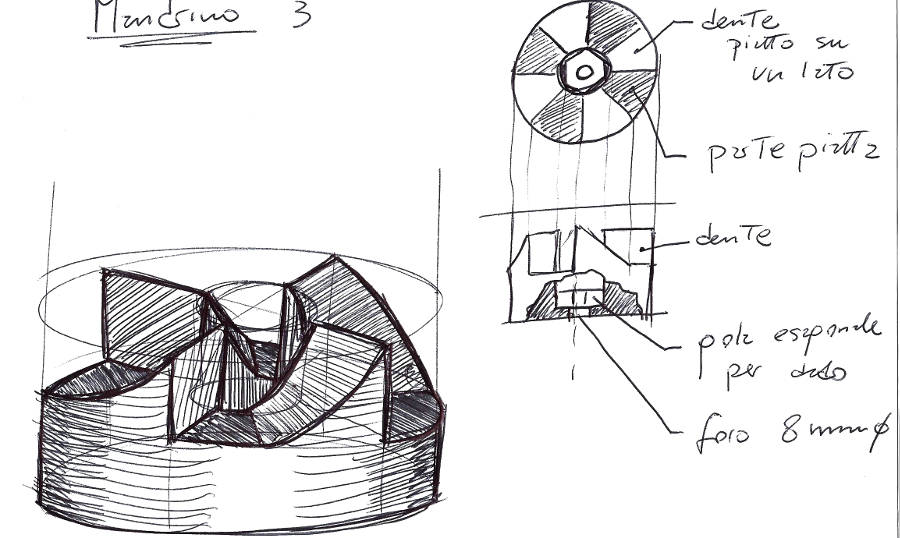 Mandrino 3
dente
piatto su
un lato
parte piatta
dente
esagonale
per dado
foro 8 mm ϕ